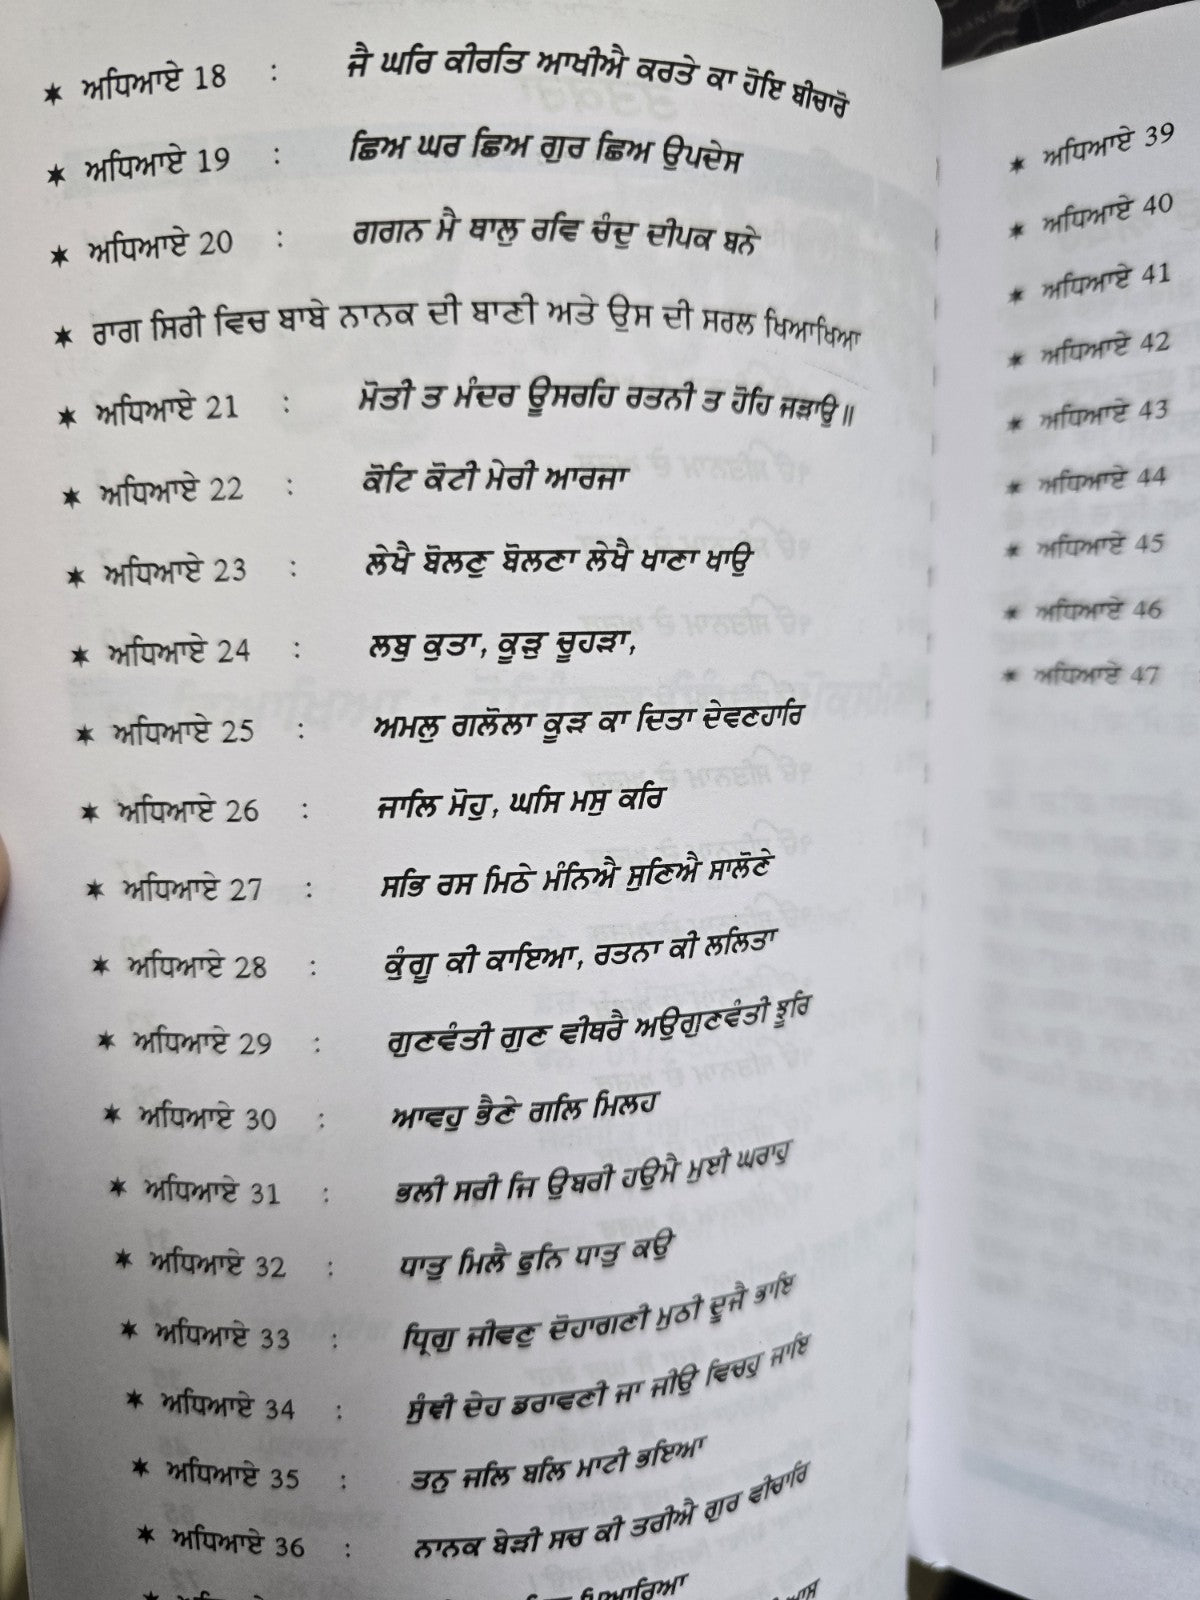 ✶ ਅਧਿਆਏ 18 : ਜੈ ਘਰਿ ਕੀਰਤਿ ਆਖੀਐ ਕਰਤੇ ਕਾ ਹੋਇ ਬੀਚਾਰੋ
✶ ਅਧਿਆਏ 19 : ਛਿਅ ਘਰ ਛਿਅ ਗੁਰ ਛਿਅ ਉਪਦੇਸ
✶ ਅਧਿਆਏ 20 : ਗਗਨ ਮੈ ਥਾਲੁ ਰਵਿ ਚੰਦੁ ਦੀਪਕ ਬਨੇ
✶ ਰਾਗ ਸਿਰੀ ਵਿਚ ਬਾਬੇ ਨਾਨਕ ਦੀ ਬਾਣੀ ਅਤੇ ਉਸ ਦੀ ਸਰਲ ਖਿਆਖਿਆ
✶ ਅਧਿਆਏ 21 : ਮੋਤੀ ਤ ਮੰਦਰ ਊਸਰਹਿ ਰਤਨੀ ਤ ਹੋਹਿ ਜੜਾਉ॥
✶ ਅਧਿਆਏ 22 : ਕੋਟਿ ਕੋਟੀ ਮੇਰੀ ਆਰਜਾ
✶ ਅਧਿਆਏ 23 : ਲੇਖੈ ਬੋਲਣੁ ਬੋਲਣਾ ਲੇਖੈ ਖਾਣਾ ਖਾਉ
✶ ਅਧਿਆਏ 24 : ਲਬੁ ਕੁਤਾ, ਕੂੜੁ ਚੂਹੜਾ,
✶ ਅਧਿਆਏ 25 : ਅਮਲੁ ਗਲੋਲਾ ਕੂੜ ਕਾ ਦਿਤਾ ਦੇਵਣਹਾਰਿ
✶ ਅਧਿਆਏ 26 : ਜਾਲਿ ਮੋਹੁ, ਘਸਿ ਮਸੁ ਕਰਿ
✶ ਅਧਿਆਏ 27 : ਸਭਿ ਰਸ ਮਿਠੇ ਮੰਨਿਐ ਸੁਣਿਐ ਸਾਲੋਣੇ
✶ ਅਧਿਆਏ 28 : ਕੁੰਗੂ ਕੀ ਕਾਇਆ, ਰਤਨਾ ਕੀ ਲਲਿਤਾ
✶ ਅਧਿਆਏ 29 : ਗੁਣਵੰਤੀ ਗੁਣ ਵੀਥਰੈ ਅਉਗੁਣਵੰਤੀ ਝੂਰਿ
✶ ਅਧਿਆਏ 30 : ਆਵਹੁ ਭੈਣੇ ਗਲਿ ਮਿਲਹ
✶ ਅਧਿਆਏ 31 : ਭਲੀ ਸਰੀ ਜਿ ਉਬਰੀ ਹਉਮੈ ਮੁਈ ਘਰਾਹੁ
✶ ਅਧਿਆਏ 32 : ਧਾਤੁ ਮਿਲੈ ਫੁਨਿ ਧਾਤੁ ਕਉ
✶ ਅਧਿਆਏ 33 : ਧ੍ਰਿਗੁ ਜੀਵਣੁ ਦੋਹਾਗਣੀ ਮੁਠੀ ਦੂਜੈ ਭਾਇ
✶ ਅਧਿਆਏ 34 : ਸੁੰਞੀ ਦੇਹ ਡਰਾਵਣੀ ਜਾ ਜੀਉ ਵਿਚਹੁ ਜਾਇ
✶ ਅਧਿਆਏ 35 : ਤਨੁ ਜਲਿ ਬਲਿ ਮਾਟੀ ਭਇਆ
✶ ਅਧਿਆਏ 36 : ਨਾਨਕ ਬੇੜੀ ਸਚ ਕੀ ਤਰੀਐ ਗੁਰ ਵੀਚਾਰਿ
ਪਿਆਰਿਆ
✶ ਅਧਿਆਏ 39
✶ ਅਧਿਆਏ 40
✶ ਅਧਿਆਏ 41
✶ ਅਧਿਆਏ 42
✶ ਅਧਿਆਏ 43
✶ ਅਧਿਆਏ 44
✶ ਅਧਿਆਏ 45
✶ ਅਧਿਆਏ 46
✶ ਅਧਿਆਏ 47